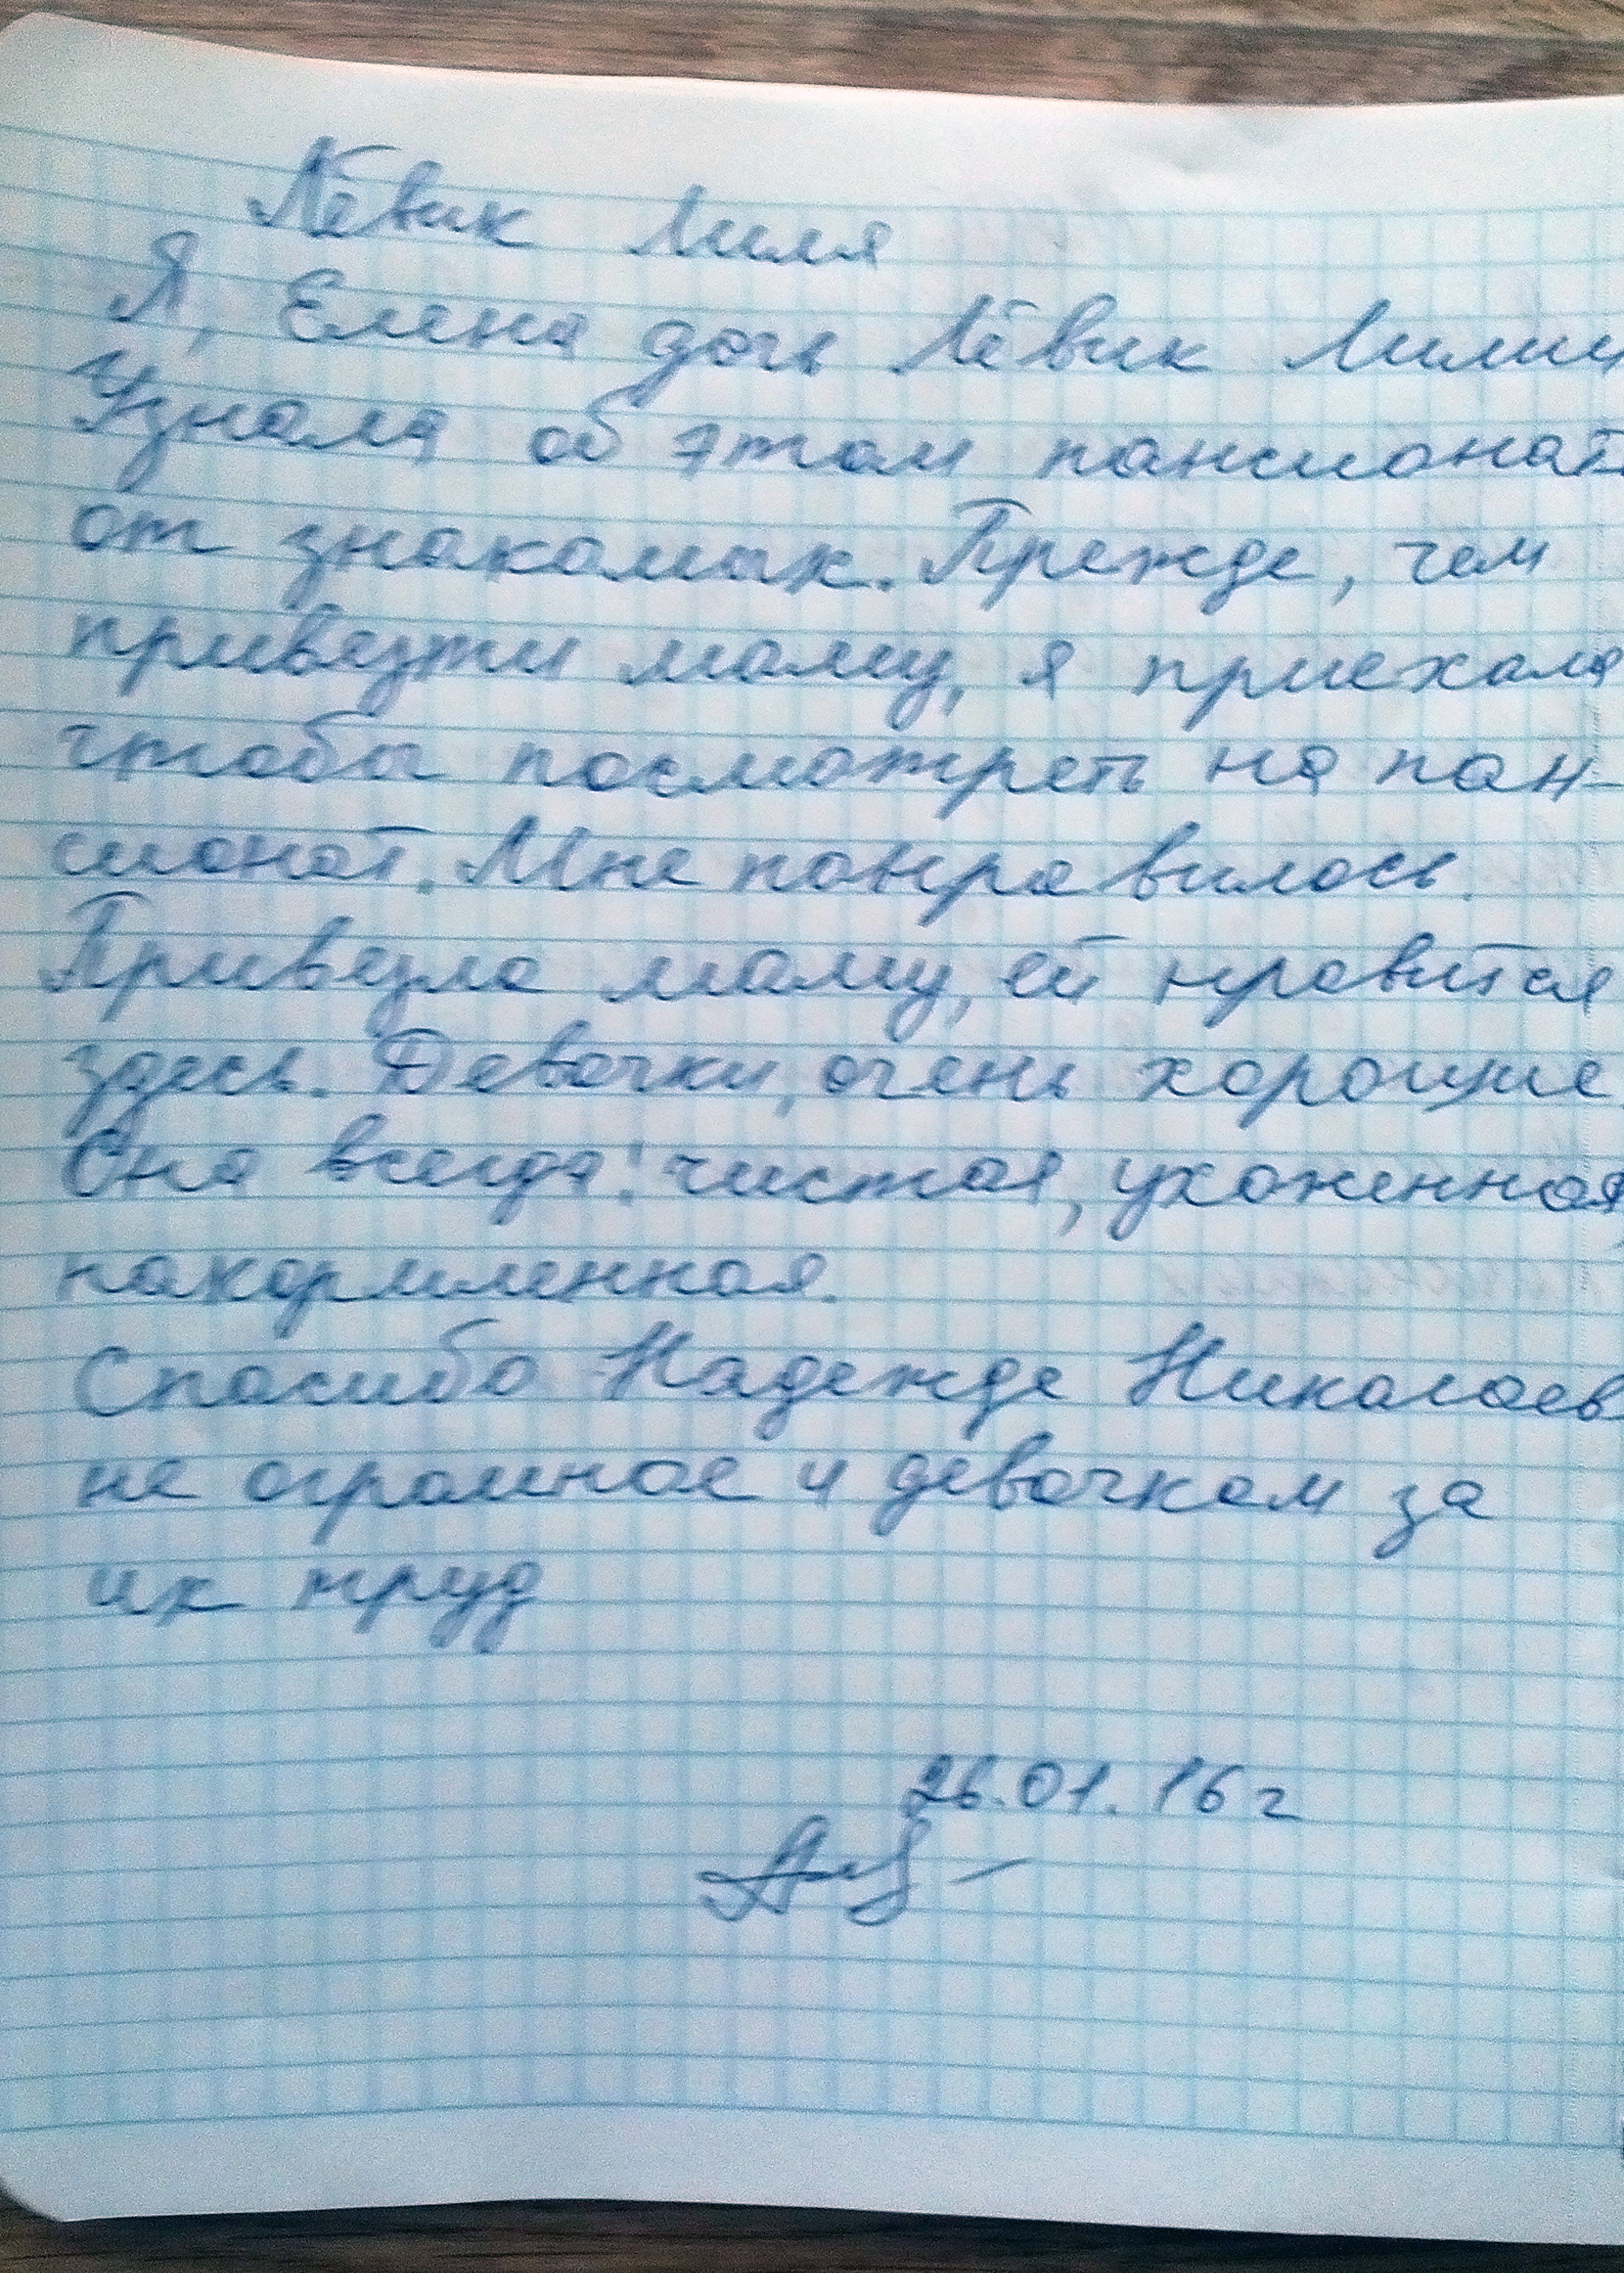 Лёвик Лиля
Я, Елена дочь Лёвик Лилии
Узнала об этом пансионат
от знакомых. Прежде, чем
привезти маму, я приехала
чтобы посмотреть на пан-
сионат. Мне понравилось.
Привезла маму, ей нравится
здесь. Девочки, очень хорошие
Она всегда: чистая, ухоженная,
накормленная.
Спасибо Надежде Николаев
не огромное и девочкам за
их труд
26.01.16 г